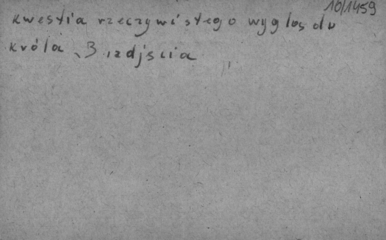 10/1459
kwestia rzeczywistego wyglądu
króla, 3 zdjęcia